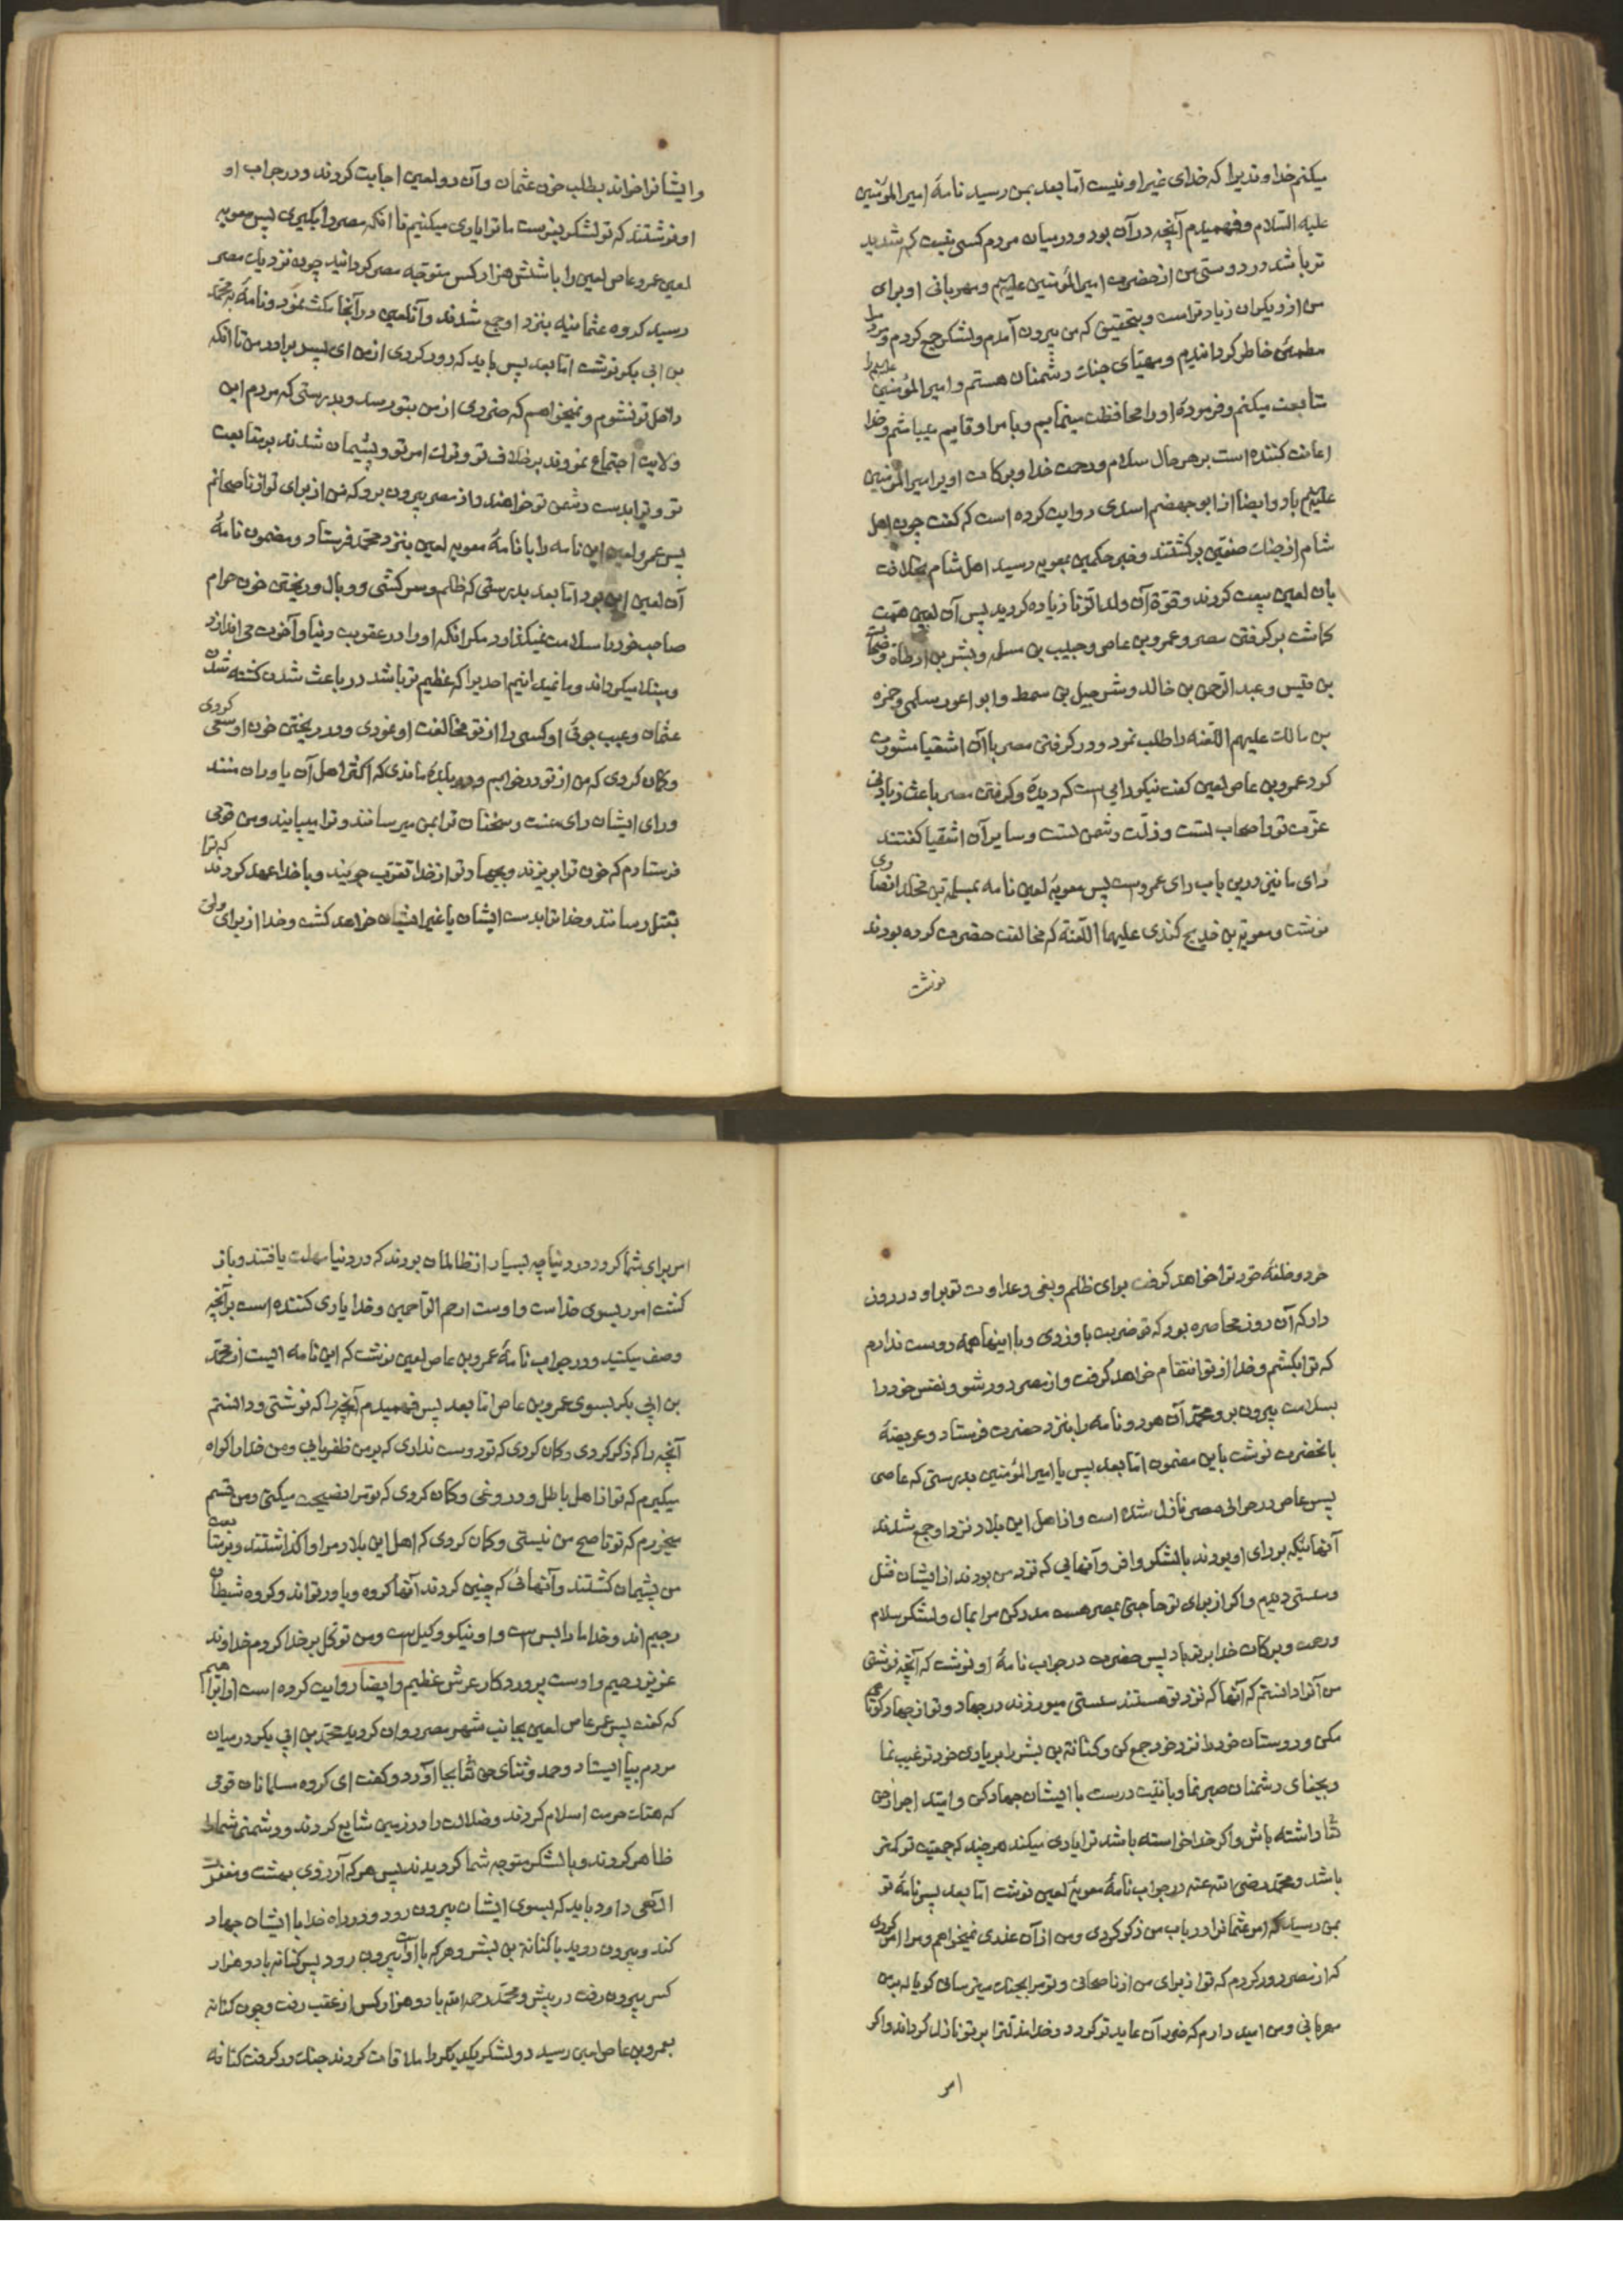 میکنم خداوندیرا که خدای غیر او نیست اما بعد بمن رسید نامهٔ امیر المؤمنین
علیه السلام و فهمیدم آنچه در آن بود و در میان مردم کسی نیست که شدید
تر باشد در دوستی من از حضرت امیر المؤمنین علیه السلم و مهربانی او برای
من از دیگران زیادتر است و بتحقیق که من بیرون آمدم و لشکر جمع کردم و مردم را
مطمئن خاطر گردانیدم و مهیای جنگ دشمنان هستم و امیر المؤمنین علیه السلم را
متابعت میکنم و فرمودهٔ او را محافظت مینمایم و بامر او قایم میباشم و خدا
اعانت کننده است بر هر حال سلام و رحمت خدا و برکات او بر امیر المؤمنین
علیه السلم باد و ایضا از ابو جهضم اسدی روایت کرده است که گفت چون اهل
شام از جنگ صفین برگشتند و خبر حکمین بمعویه رسید اهل شام بخلافت
بان لعین بیعت کردند و قوة آن ولد الزنا زیاده گردید پس آن لعین همت
گماشت بر گرفتن مصر و عمرو بن عاص و حبیب بن مسلمه و بشر بن ارطاة و ضحاک
بن قیس و عبد الرحمن بن خالد و شرجیل بن سمط و ابو اعور سلمی و حمزه
بن مالک علیهم اللعنه را طلب نمود و در گرفتن مصر با آن اشقیا مشورت
کرد عمرو بن عاص لعین گفت نیکو رایی است که دیدهٔ و گرفتن مصر باعث زیادتی
عزت تو و اصحاب تست و ذلت دشمن تست و سایر آن اشقیا گفتند
رای ما نیز درین باب رای عمرو است پس معویهٔ لعین نامه بمسلمة بن مخلد انصاری
نوشت و معویة بن خدیج کندی علیهما اللعنة که مخالفت حضرت کرده بودند
نوشت
و ایشانرا خواند بطلب خون عثمان و آن دو لعین اجابت کردند و در جواب او
او نوشتند که تو لشکر بفرست ما ترا یاری میکنیم تا آنکه مصر را بگیری پس معویه
لعین عمرو عاص لعین را با شش هزار کس متوجه مصر گردانید چون نزدیک مصر
رسید گروه عثمانیه بنزد او جمع شدند و آنلعین در آنجا مکث نمود و نامهٔ به محمد
بن ابی بکر نوشت اما بعد پس باید که دور گردی از من ای پسر برادر من تا آنکه
داخل تو نشوم و نمیخواهم که ضرری از من بتو رسد و بدرستی که مردم این
ولایت اجتماع نمودند بر خلاف تو و ترک امر تو و پشیمان شدند بر متابعت
تو و ترا بدست دشمن تو خواهند داد از مصر بیرون برو که من از برای تو از ناصحانم
پس عمرو لعین این نامه را با نامهٔ معویه لعین بنزد محمد فرستاد و مضمون نامهٔ
آن لعین این بود اما بعد بدرستی که ظلم و سرکشی و وبال و ریختن خون حرام
صاحب خود را سلامت نمیگذارد مگر آنکه او را در عقوبت دنیا و آخرت می اندازد
و مبتلا میگرداند و ما نمیدانیم احدیرا که عظیم تر باشد در باعث شدن کشته شدن
عثمان و عیب جوئی او کسی را از تو مخالفت او نمودی و در ریختن خون او سعی کردی
و گمان کردی که من از تو در خوابم و در بلدهٔ ماندی که اکثر اهل آن یاوران منند
و رای ایشان رای منست و سخنان ترا بمن میرسانند و ترا میپایند و من قومی
فرستادم که خون ترا بریزند و بجهاد تو از خدا تقرب جویند و با خدا عهد کردند که ترا
بقتل رسانند و خدا ترا بدست ایشان یا غیر ایشان خواهد کشت و خدا از برای ولی
خود و خلیفهٔ خود ترا خواهد گرفت برای ظلم و بغی و عداوت تو بر او در روز
دار که آن روز محاصره بود که تو ضربت باو زدی و با اینها همه دوست ندارم
که ترا بکشم و خدا از تو انتقام خواهد گرفت و از مصر دور شو و نفس خود را
بسلامت بیرون بر و محمد آن هر دو نامه را بنزد حضرت فرستاد و عریضهٔ
بانحضرت نوشت باین مضمون اما بعد پس یا امیر المؤمنین بدرستی که عاصی
پس عاص در حوالی مصر نازل شده است و از اهل این بلاد نزد او جمع شدند
آنهائیکه بر رای او بودند با لشکر وافر و آنهایی که نزد من بودند از ایشان فشل
و سستی دیدم و اگر از برای تو حاجتی بمصر هست مدد کن مرا بمال و لشکر سلام
و رحمت و برکات خدا بر تو باد پس حضرت در جواب نامهٔ او نوشت که آنچه نوشتی
من آنرا دانستم که آنها که نزد تو هستند سستی میورزند در جهاد و تو از جهاد کوتاهی
مکن و دوستان خود را نزد خود جمع کن و کنانة بن بشر را بر یاری خود ترغیب نما
و بجفای دشمنان صبر نما و با نیت درست با ایشان جهاد کن و امید اجر از حق
تعا داشته باش و اگر خدا خواسته باشد ترا یاری میکند هر چند که جمعیت تو کمتر
باشد و محمد رضی الله عنه در جواب نامهٔ معویهٔ لعین نوشت اما بعد پس نامهٔ تو
بمن رسید که امر عثمانرا در باب من ذکر کردی و من از آن عذری نمیخواهم و مرا امر کردی
که از مصر دور گردم که تو از برای من از ناصحانی و تو مرا بجنگ میترسانی گویا که بمن
مهربانی و من امید دارم که ضرر آن عاید تو گردد و خدا مذلت را بر تو نازل گرداند و اگر
امر
امر برای شما گردد در دنیا چه بسیار از ظالمان بودند که در دنیا مهلت یافتند و باز
گشت امور بسوی خداست و اوست ارحم الراحمین و خدا یاری کننده است بر آنچه
وصف میکنید و در جواب نامهٔ عمرو بن عاص لعین نوشت که این نامه ایست از محمد
بن ابی بکر بسوی عمرو بن عاص اما بعد پس فهمیدم آنچه را که نوشتی و دانستم
آنچه را که ذکر کردی و گمان کردی که تو دوست نداری که بر من ظفر یابی و من خدا را گواه
میگیرم که تو از اهل باطل و دروغی و گمان کردی که تو مرا نصیحت میکنی و من قسم
میخورم که تو ناصح من نیستی و گمان کردی که اهل این بلاد مرا واگذاشتند و بر متابعت
من پشیمان گشتند و آنهائی که چنین کردند آنها گروه و یاور تواند و گروه شیطان
رجیم اند و خدا ما را بس است و او نیکو وکیل است و من توکل بر خدا کردم خداوند
عزیز رحیم و اوست پروردگار عرش عظیم و ایضا روایت کرده است از ابراهیم
که گفت پس عمر عاص لعین بجانب شهر مصر روان گردید محمد بن ابی بکر در میان
مردم بپا ایستاد و حمد و ثنای حق تعا بجا آورد و گفت ای گروه مسلمانان قومی
که هتک حرمت اسلام کردند و ضلالت را در زمین شایع کردند و دشمنی شما را
ظاهر کردند و با لشکر متوجه شما گردیدند پس هر که آرزوی بهشت و مغفرت
الهی دارد باید که بسوی ایشان بیرون رود و در راه خدا با ایشان جهاد
کند و بیرون روید با کنانة بن بشر و هر که با او بیرون رود پس کنانه با دو هزار
کس بیرون رفت در پیش و محمد رحمه الله با دو هزار کس از عقب رفت و چون کنانه
بعمرو بن عاص لعین رسید دو لشکر یکدیگر را ملاقات کردند جنگ در گرفت کنانه